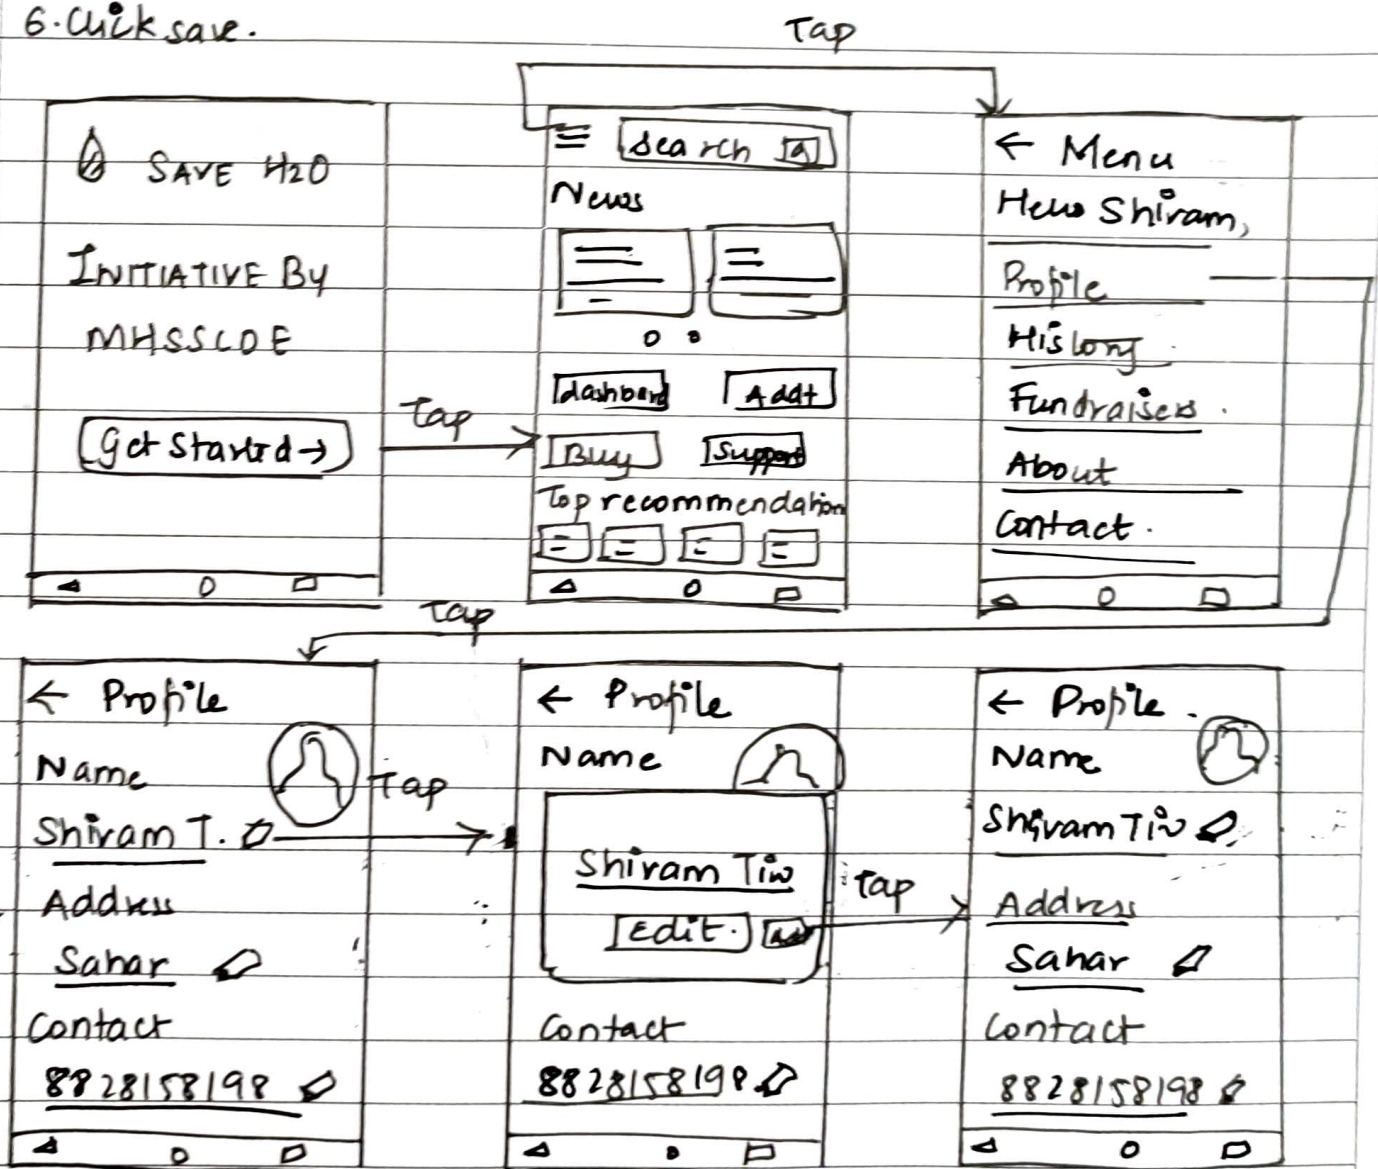 6. Click save.
Tap
SAVE H2O
INITIATIVE By
MHSSCOE
Get Started →
Tap
Search
News
dashboard
Add+
Buy
Support
Top recommendation
← Menu
Hello Shivam,
Profile
History
Fundraisers.
About
Contact.
Tap
← Profile
Name
Shivam T.
Address
Sahar
Contact
8828158198
Tap
← Profile
Name
Shivam Tiw
Edit.
Contact
8828158198
Tap
← Profile.
Name
Shivam Tiw
Address
Sahar
Contact
8828158198